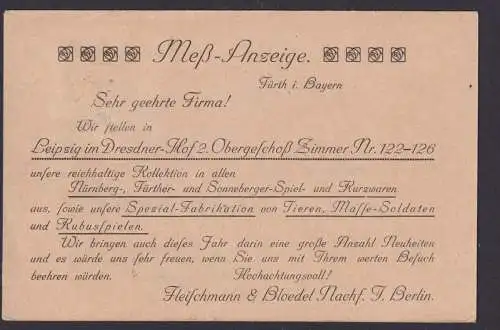 Meß-Anzeige.
Fürth i. Bayern
Sehr geehrte Firma!
Wir stellen in
Leipzig im Dresdner-Hof 2. Obergeschoß Zimmer Nr. 122–126
unsere reichhaltige Kollektion in allen
Nürnberg-, Fürther- und Sonneberger-Spiel- und Kurzwaren
aus, sowie unsere Spezial-Fabrikation von Tieren, Masse-Soldaten
und Kubusspielen.
Wir bringen auch dieses Jahr darin eine große Anzahl Neuheiten
und es würde uns sehr freuen, wenn Sie uns mit Ihrem werten Besuch
beehren würden. Hochachtungsvoll!
Fleischmann & Bloedel Nachf. J. Berlin.